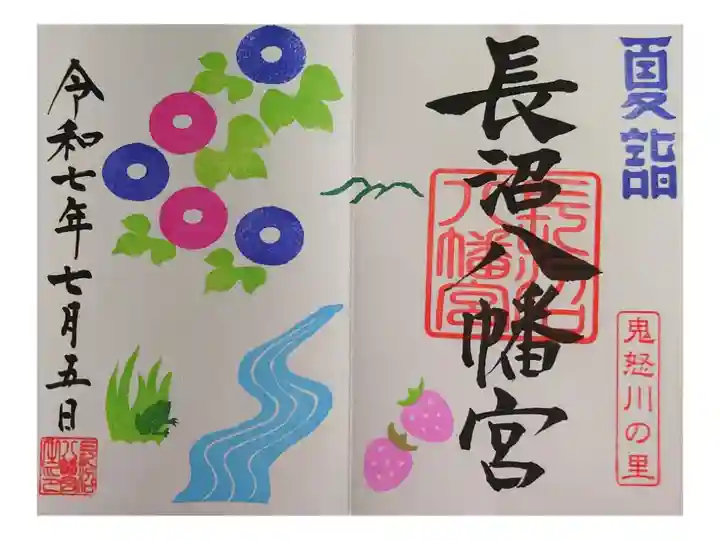 夏詣
鬼怒川の里
長沼八幡宮
長沼八幡宮
令和七年七月五日